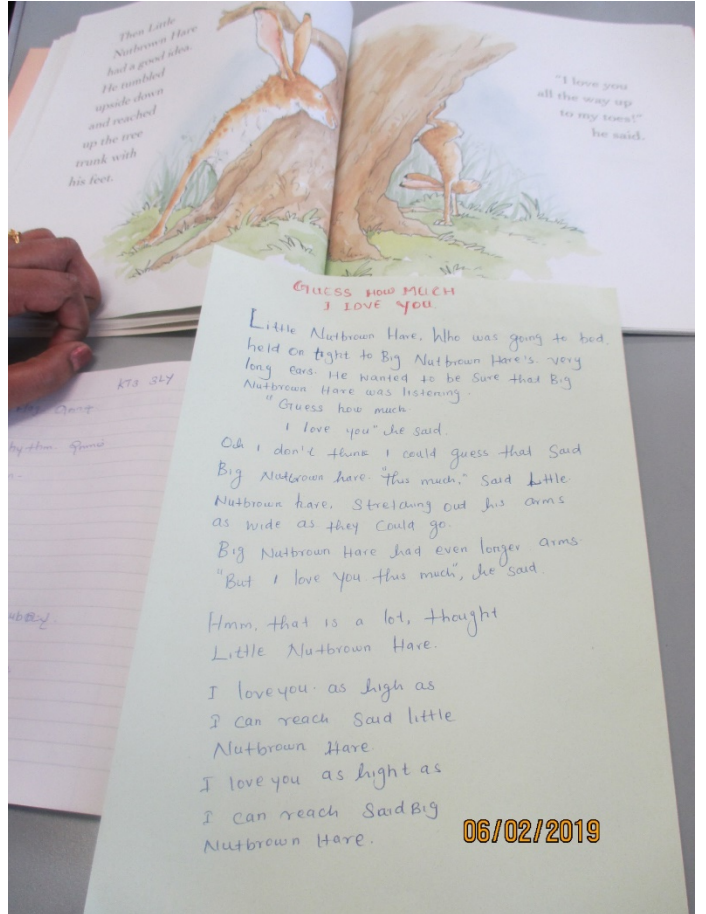 Then Little
Nutbrown Hare
had a good idea.
He tumbled
upside down
and reached
up the tree
trunk with
his feet.
"I love you
all the way up
to my toes!"
he said.
GUESS HOW MUCH
I LOVE YOU
Little Nutbrown Hare, Who was going to bed,
held on tight to Big Nutbrown Hare's very
long ears. He wanted to be sure that Big
Nutbrown Hare was listening.
"Guess how much
I love you" he said.
Oh I don't think I could guess that Said
Big Nutbrown have. "this much," Said Little
Nutbrown have, Stretching out his arms
as wide as they could go.
Big Nutbrown Hare had even longer arms
"But I love You this much", he said.
Hmm, that is a lot, thought
Little Nutbrown Hare.
I love you as high as
I can reach Said little
Nutbrown Hare
I love you as hight as
I can reach Said Big
Nutbrown Hare.
06/02/2019